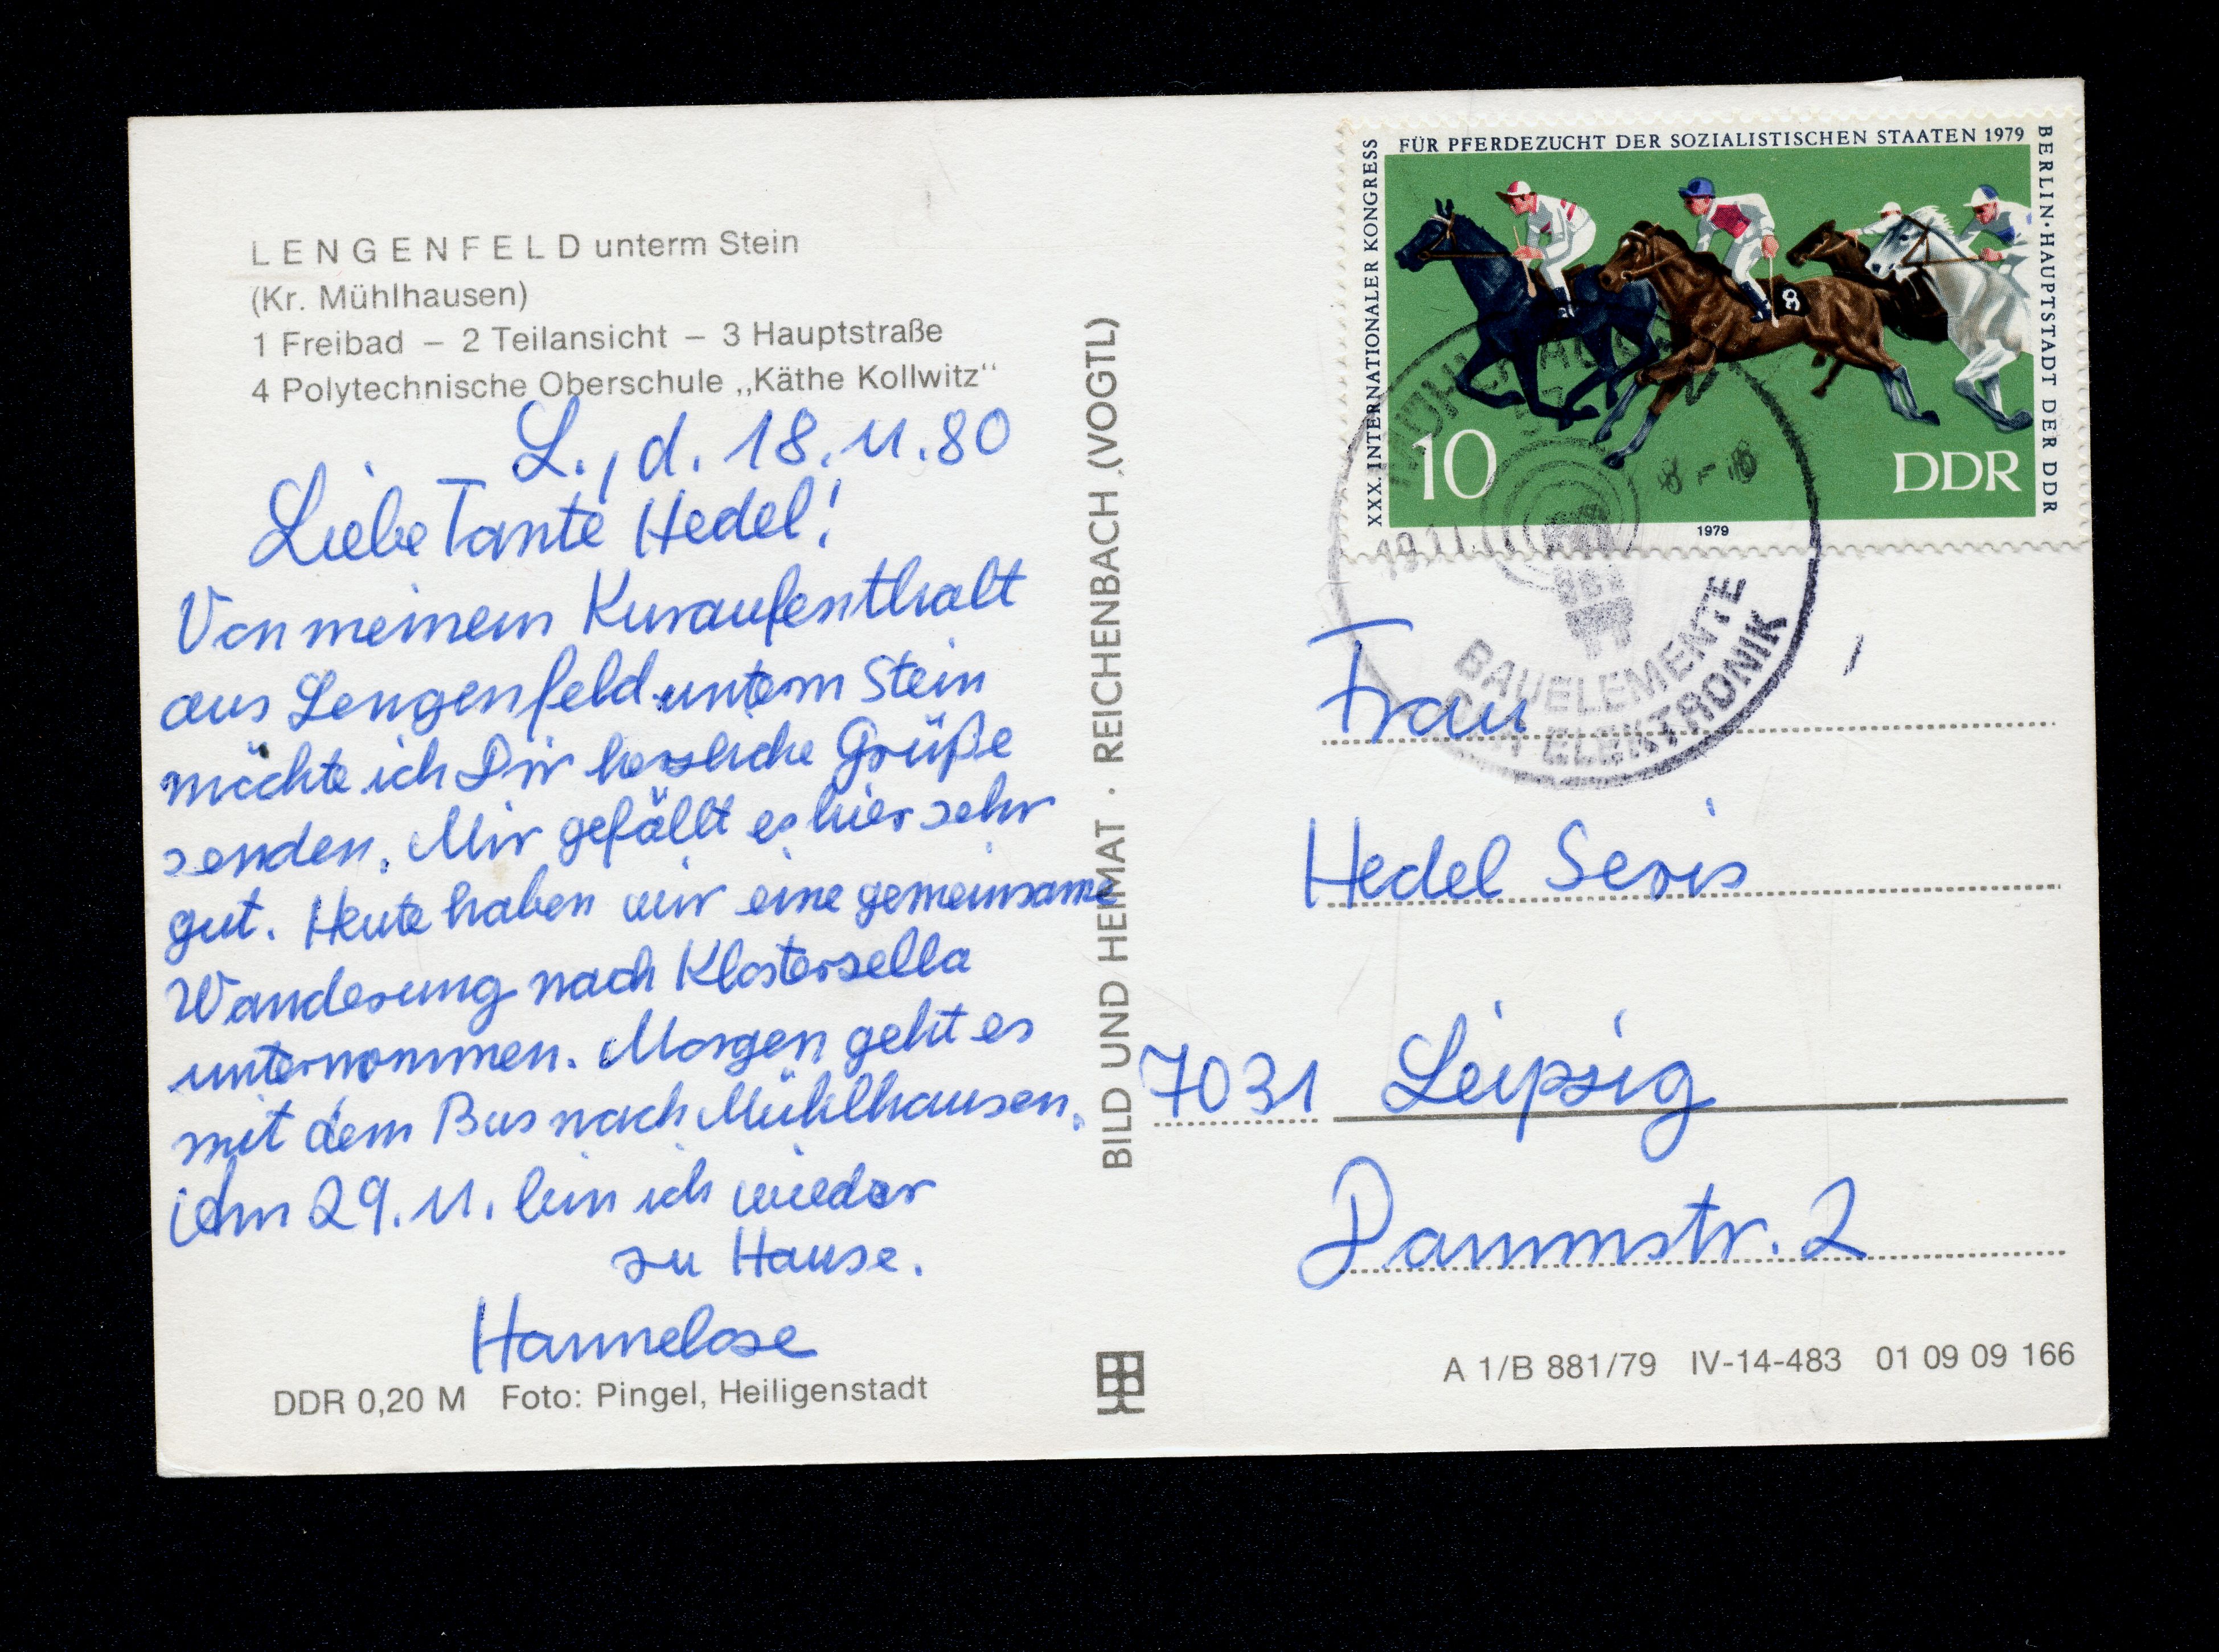 LENGENFELD unterm Stein
(Kr. Mühlhausen)
1 Freibad – 2 Teilansicht – 3 Hauptstraße
4 Polytechnische Oberschule „Käthe Kollwitz"
L., d. 18.11.80
Liebe Tante Hedel!
Von meinem Kuraufenthalt
aus Lengenfeld unterm Stein
möchte ich Dir herzliche Grüße
senden. Mir gefällt es hier sehr
gut. Heute haben wir eine gemeinsame
Wanderung nach Klosterzella
unternommen. Morgen geht es
mit dem Bus nach Mühlhausen.
Am 29.11. bin ich wieder
zu Hause.
Hannelore
DDR 0,20 M Foto: Pingel, Heiligenstadt
BILD UND HEIMAT · REICHENBACH (VOGTL)
XXX. INTERNATIONALER KONGRESS
FÜR PFERDEZUCHT DER SOZIALISTISCHEN STAATEN 1979
BERLIN·HAUPTSTADT DER DDR
8
10
DDR
1979
BAUELEMENTE
ELEKTRONIK
Frau
Hedel Seris
7031 Leipzig
Dammstr. 2
A 1/B 881/79 IV-14-483 01 09 09 166